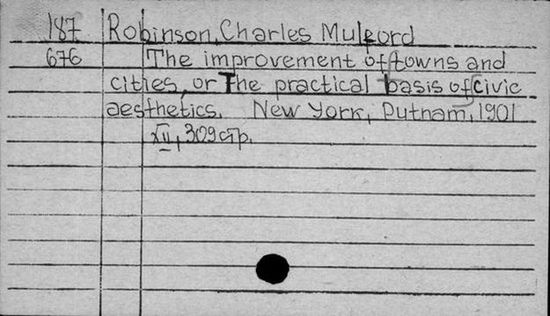 187 Robinson, Charles Mulford
676 The improvement of towns and
cities, or The practical basis of civic
aesthetics. New York, Putnam, 1901
XII, 309 стр.